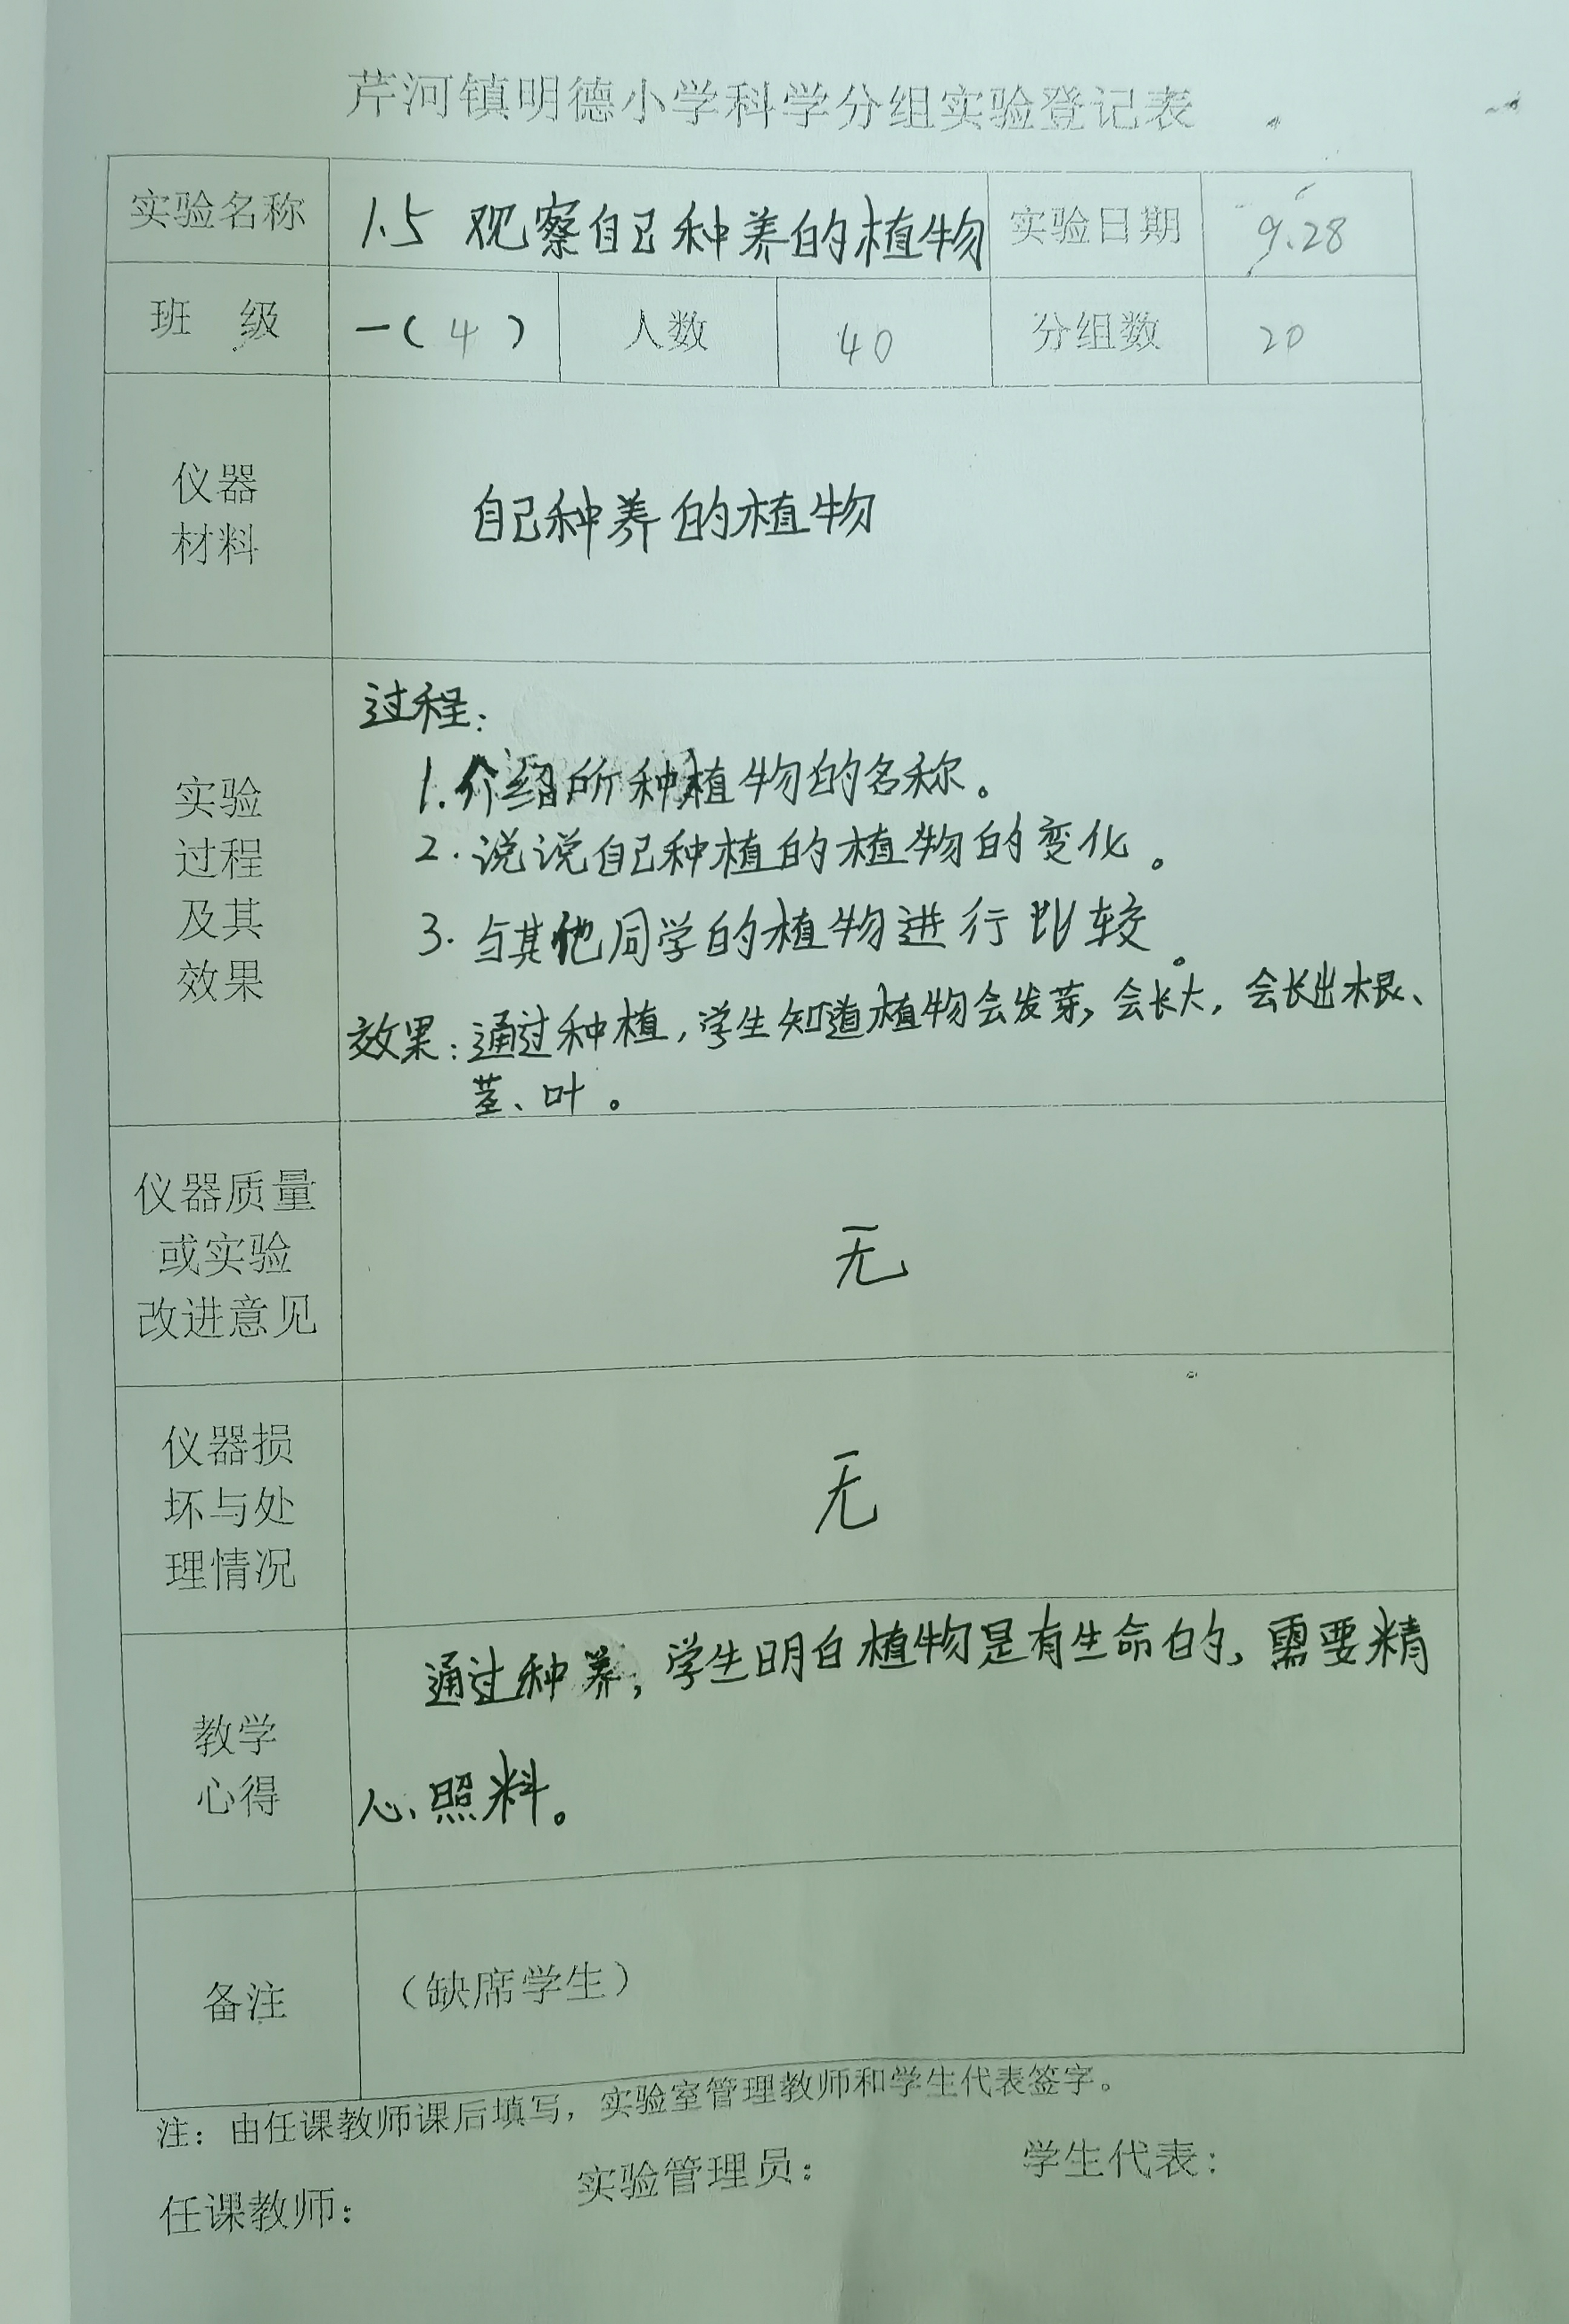 芹河镇明德小学科学分组实验登记表
实验名称 1.5 观察自己种养的植物 实验日期 9.28
班 级 一(4) 人数 40 分组数 20
仪器
材料
自己种养的植物
实验
过程
及其
效果
过程:
1.介绍所种植物的名称。
2.说说自己种植的植物的变化。
3.与其他同学的植物进行比较。
效果:通过种植,学生知道植物会发芽,会长大,会长出根、
茎、叶。
仪器质量
或实验
改进意见
无
仪器损
坏与处
理情况
无
教学
心得
通过种养,学生明白植物是有生命的,需要精
心照料。
备注
(缺席学生)
注:由任课教师课后填写,实验室管理教师和学生代表签字。
任课教师: 实验管理员: 学生代表: